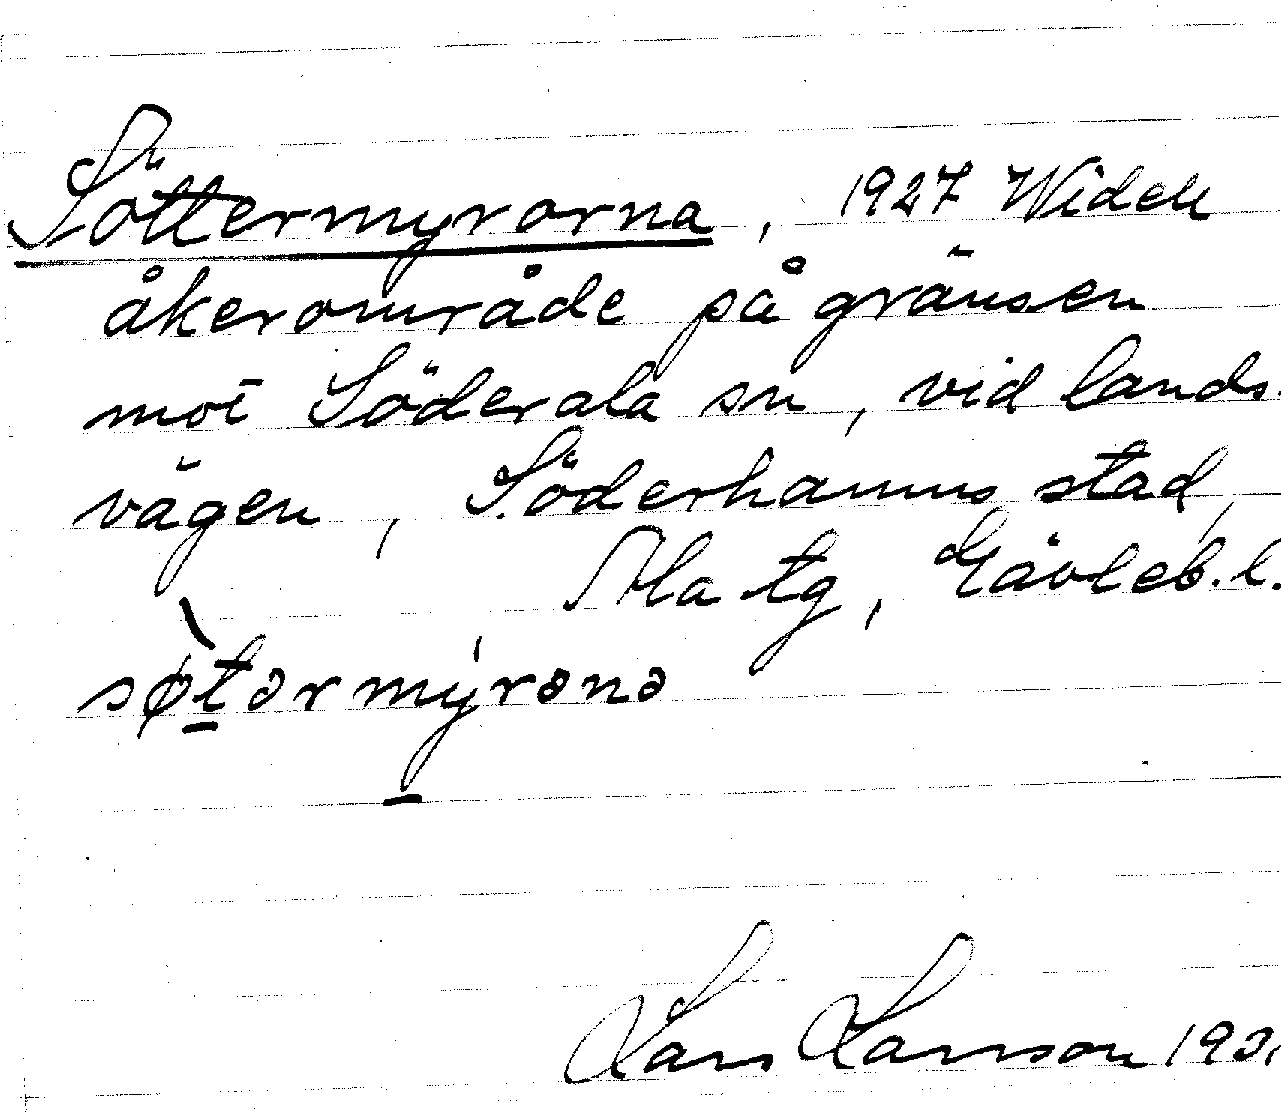 Söttermyrorna, 1927 Widell
åkerområde på gränsen
mot Söderala sn, vid lands-
vägen, Söderhamns stad,
Ala tg, Gävleb. l.
sø̀tərmýrənə
Lars Larsson